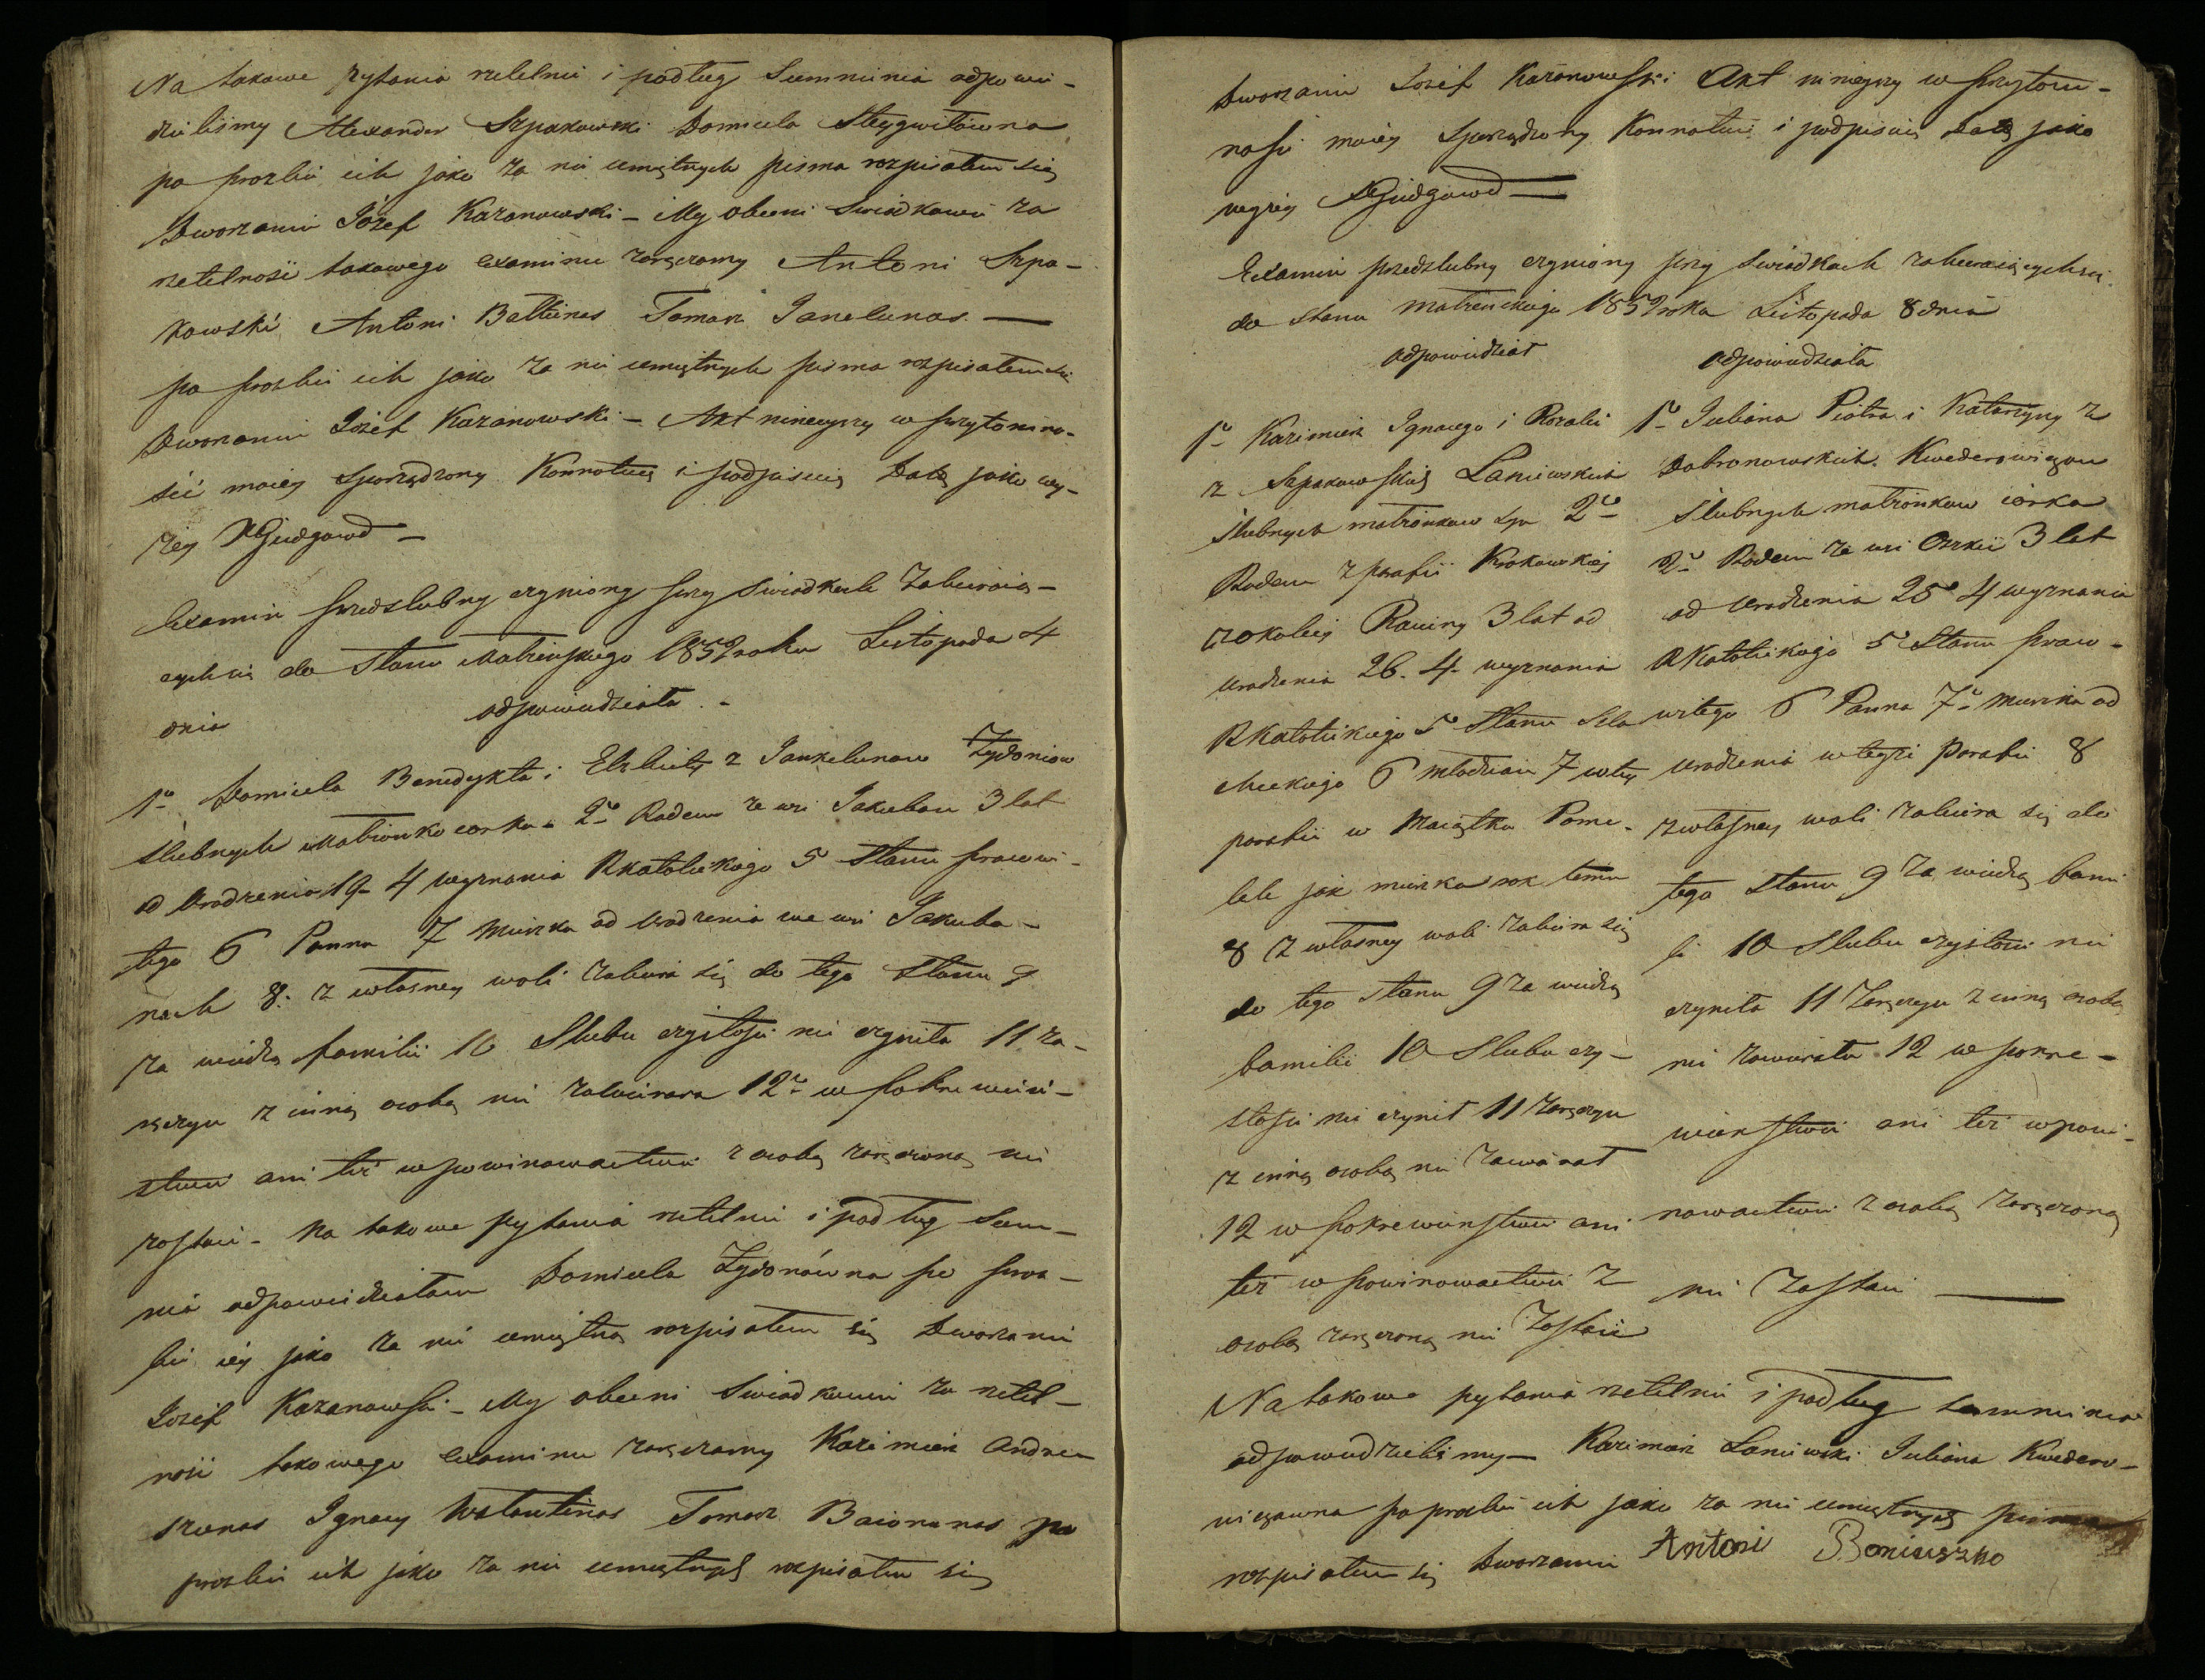 Na takowe pytania rzetelnie i podług Sumnienia odpowie-
dzieliśmy Alexander Szpakowski Domicela Steygwiłówna
po prozbie ich jako za nie umiętnych pisma rozpisałem się
Dworzanin Józef Kazanowski – My obecni Swiadkowie za
rzetelność takowego Examinu zaręczamy Antoni Szpa-
kowski Antoni Baltunas Tomasz Janelunas —
po prozbie ich jako za nie umiętnych pisma rozpisałem się
Dworzanin Józef Kazanowski – Akt ninieyszy w przytomno-
ści moiey Sporządzony Konnotuię i podpisuię Datą jako wy-
żey
Examin przedslubny czyniony przy Swiadkach zabieraią-
cych się do Stanu Małżeńskiego 1852 roku Listopada 4
dnia
odpowiedziała -
1o Domicela Benedykta i Elzbiety z Jankelunow Żydoniow
Slubnych Małżonkow corka. 2o Rodem ze wsi Jakuban 3 lat
od Urodzenia 19 4 wyznania RKatolickiego 5 Stanu prawowi-
tego 6 Panna 7 Mieszka od Urodzenia we wsi Jakuba-
nach 8. z własney woli zabiera się do tego Stanu 9
za wiedzą familii 10 Slubu czystości nie czyniła 11 za-
ręczyn z inną osobą nie zawierara 12o w pokrewień-
stwie ani też w powinowactwie z osobą zaręczoną nie
zostaie - Na takowe pytania rzetelnie i podług Sum-
nia odpowiedziałam Domicela Żydonówna po proz-
bie iey jako za nie umiętną rozpisałem się Dworzanin
Jozef Kazanowski – My obecni Swiadkowie za rzetel-
ność takowego Examinu zaręczamy Kazimierz Andrze-
szunas Ignacy Walantinas Tomasz Baiorunas po
prozbie ich jako za nie umiętnych rozpisałem się
Dworzanin Jozef Kazanowski Akt ninieyszy w przytom-
ności moiey Sporządzony Konnotuię i podpisuię Datą jako
wyżey
Examin przedslubny czyniony przy Swiadkach zabieraiących się
do Stanu Małżeńskiego 1852 roku Listopada 8 dnia
odpowiedział
1o Kazimierz Ignacego i Rozalii
z Szpakowskich Laniewskich
Slubnych małżonkow syn 2o
Rodem z parafii Krokowskiej
z okolicy Rawiny 3 lat od
urodzenia 26. 4. wyznania
RKatolickiego 5o Stanu Szla-
checkiego 6 młodzian 7 w tey
parafii w Maiątku Pome-
lele jak mieszka rok temu
8 z własney woli zabiera się
do tego Stanu 9 za wiedzą
familii 10 Slubu czy-
stości nie czynił 11 zaręczyn
z inną osobą nie zawierał
12 w pokrewieństwie ani
też w powinowactwie z
osobą zaręczoną nie zostaie
odpowiedziała
1o Juliana Piotra i Katarzyny z
Dobronowskich Kwederowiczow
Slubnych małżonkow córka
2o Rodem ze wsi Oszkii 3 lat
od urodzenia 25 4 wyznania
RKatolickiego 5 Stanu praw-
witego 6 Panna 7o mieszka od
urodzenia w teyże Parafii 8
z własney woli zabiera się do
tego Stanu 9 za wiedzą fami-
li 10 Slubu czystości nie
czyniła 11 Zaręczyn z inną osobą
nie zawierała 12 w pokre-
wieństwie ani też w powi-
nowactwie z osobą zaręczoną
nie zostaie —
Na takowe pytania rzetelnie i podług sumnienia
odpowiedzieliśmy – Kazimierz Laniewski Juliana Kwedero-
wiczowna po prozbie ich jako za nie umiętnych pisma
rozpisałem się Dworzanin Antoni Boniuszko